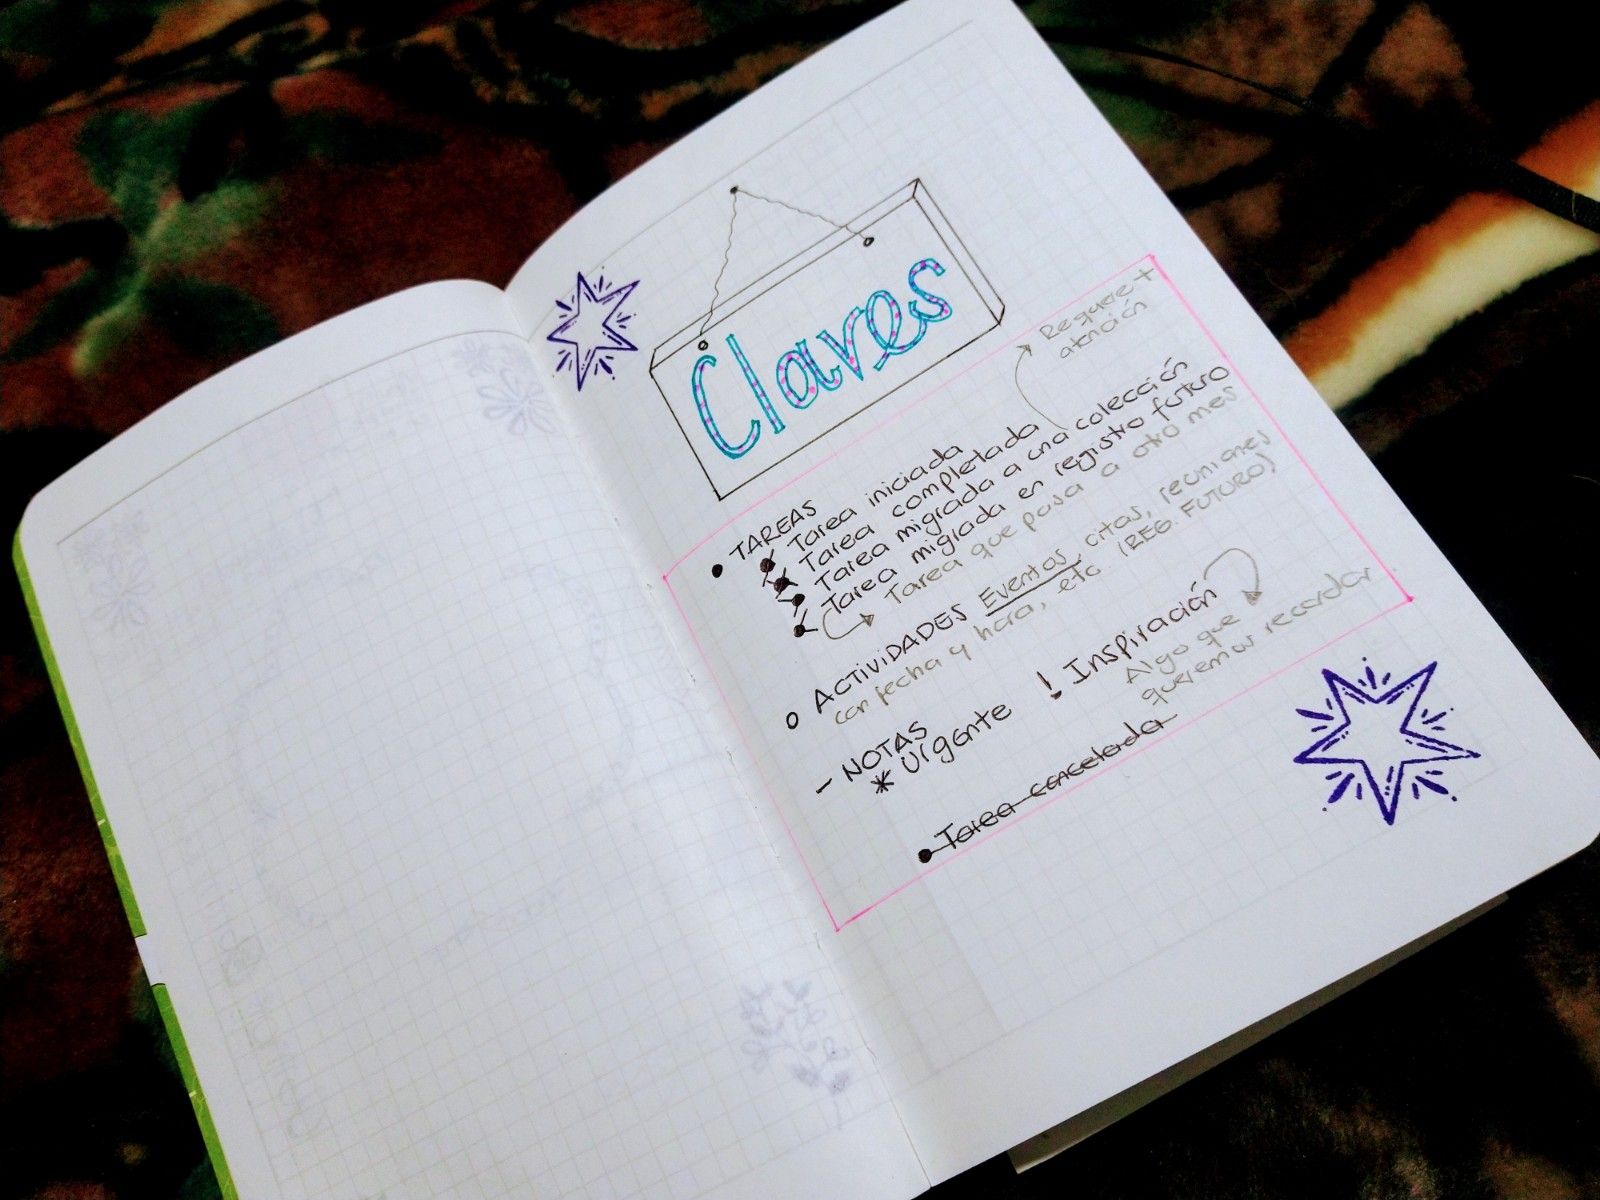 Claves
Requiere +
atención
• TAREAS
Tarea iniciada
Tarea completada
Tarea migrada a una colección
Tarea migrada en registro futuro
Tarea que pasa a otro mes
o ACTIVIDADES Eventos, citas, reuniones
con fecha y hora, etc. (REG. FUTURO)
- NOTAS
* Urgente ! Inspiración
Algo que
queremos recordar
• Tarea cancelada